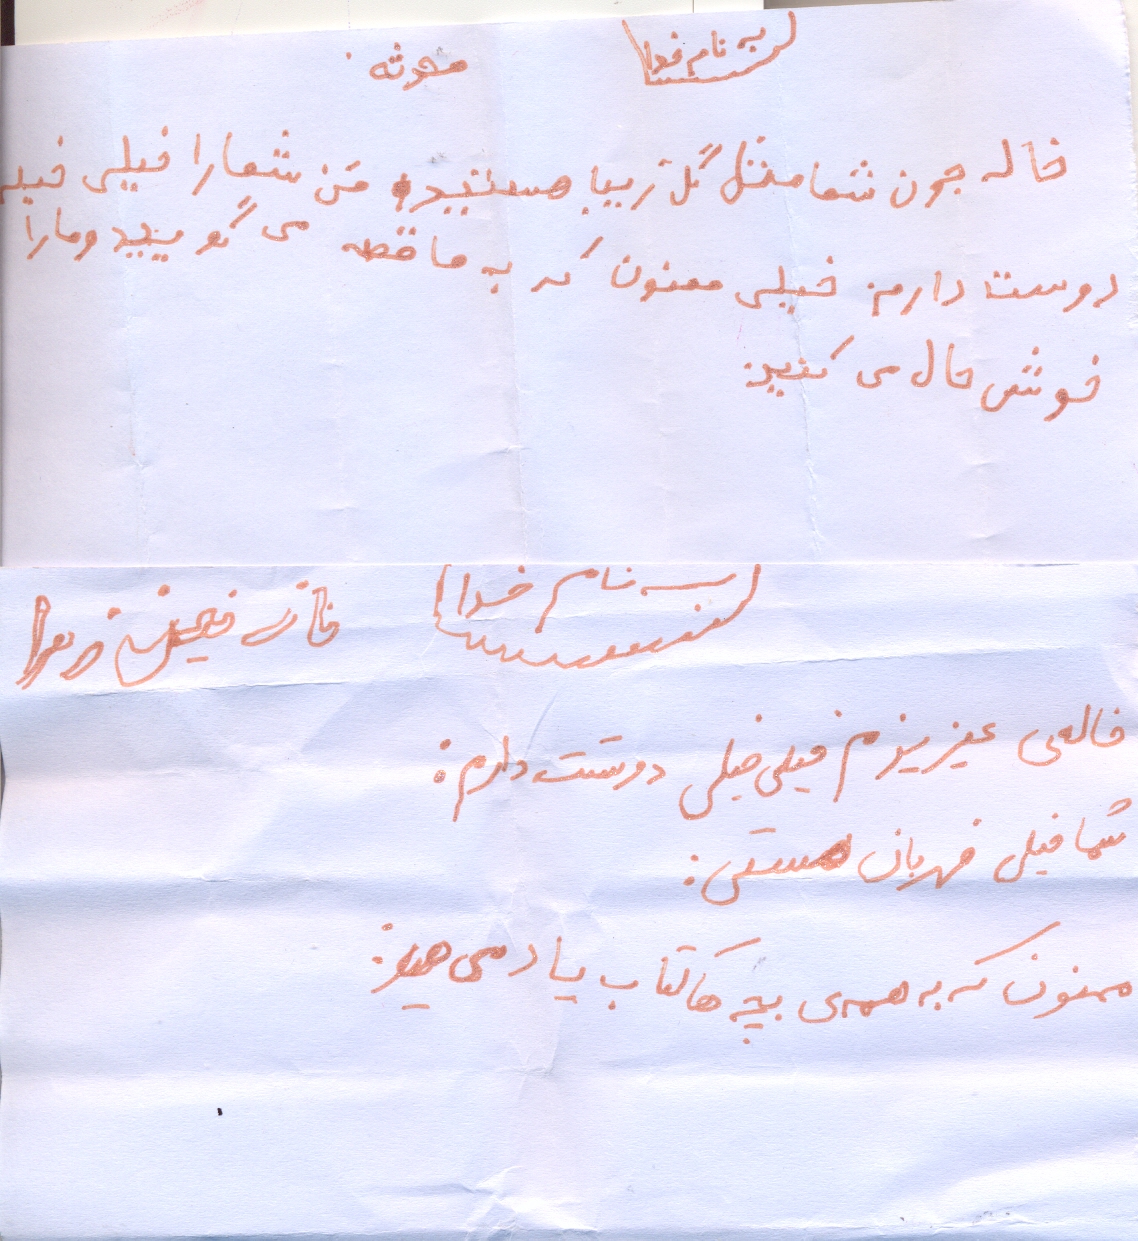 به نام خدا
خاله جون شما مثل گل زیبا هستید من شما را خیلی خیلی
دوست دارم. خیلی ممنون که به ما قصه می گویید و ما را
خوش حال می کنید.
به نام خدا
خاله‌ی عزیزم خیلی خیلی دوستت دارم.
شما خیلی مهربان هستی.
ممنون که به همه‌ی بچه ها کتاب یاد می